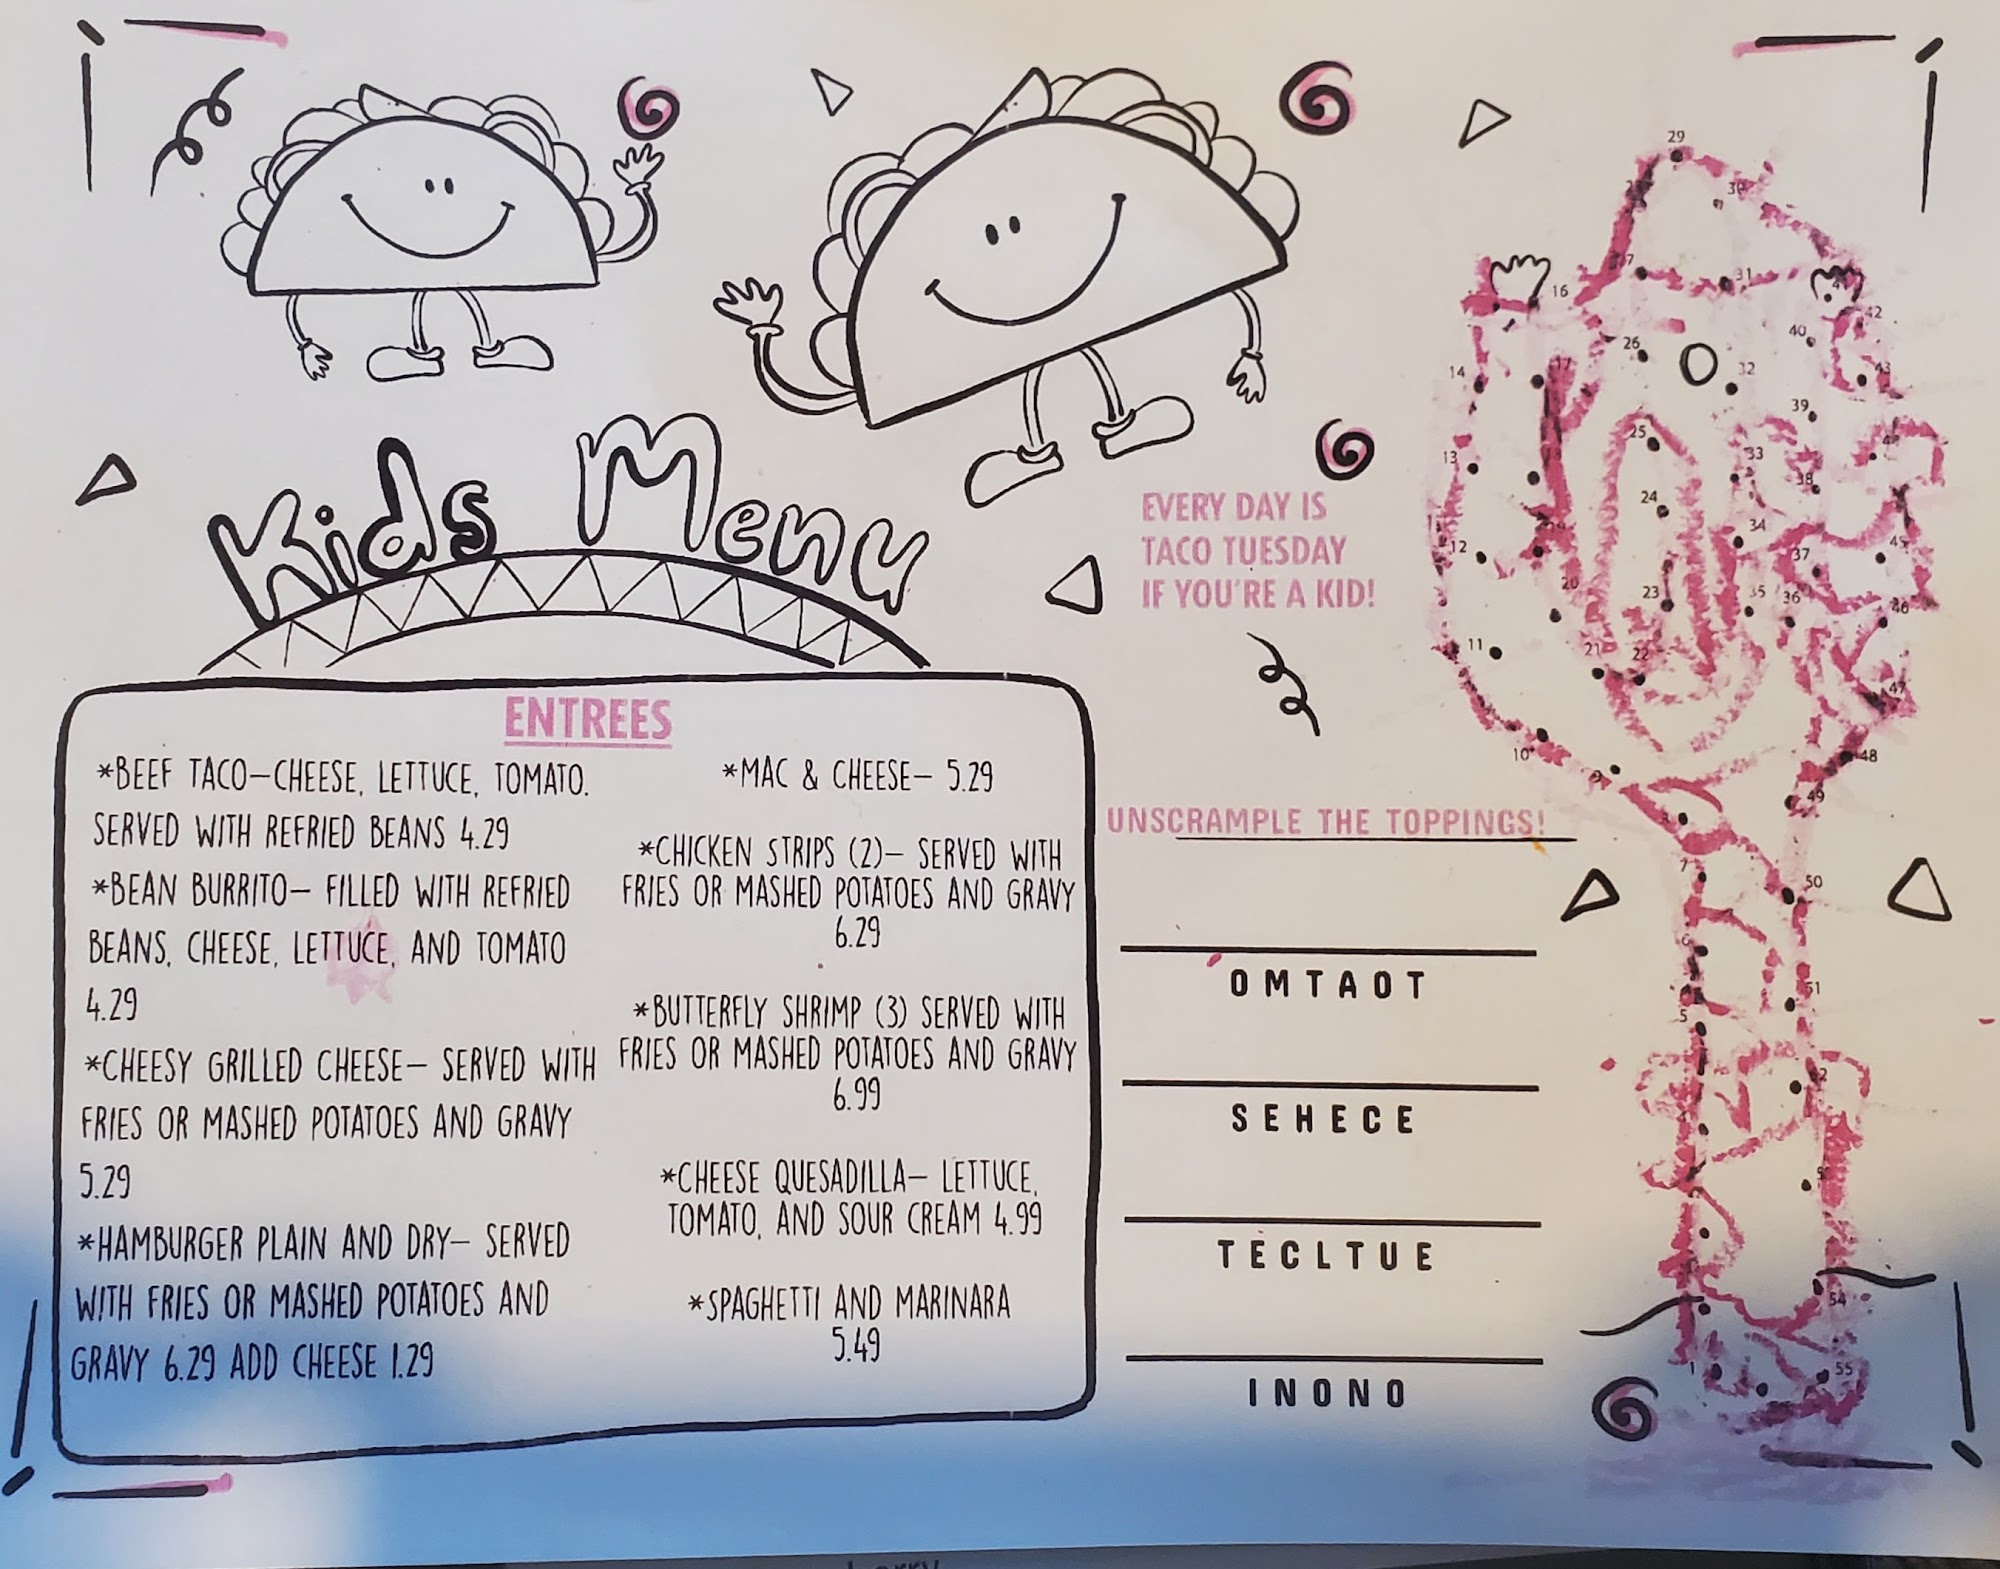 Kids Menu
EVERY DAY IS
TACO TUESDAY
IF YOU'RE A KID!
ENTREES
*BEEF TACO–CHEESE, LETTUCE, TOMATO.
SERVED WITH REFRIED BEANS 4.29
*BEAN BURRITO– FILLED WITH REFRIED
BEANS, CHEESE, LETTUCE, AND TOMATO
4.29
*CHEESY GRILLED CHEESE– SERVED WITH
FRIES OR MASHED POTATOES AND GRAVY
5.29
*HAMBURGER PLAIN AND DRY– SERVED
WITH FRIES OR MASHED POTATOES AND
GRAVY 6.29 ADD CHEESE 1.29
*MAC & CHEESE– 5.29
*CHICKEN STRIPS (2)– SERVED WITH
FRIES OR MASHED POTATOES AND GRAVY
6.29
*BUTTERFLY SHRIMP (3) SERVED WITH
FRIES OR MASHED POTATOES AND GRAVY
6.99
*CHEESE QUESADILLA– LETTUCE,
TOMATO, AND SOUR CREAM 4.99
*SPAGHETTI AND MARINARA
5.49
UNSCRAMPLE THE TOPPINGS!
OMTAOT
SEHECE
TECLTUE
INONO
29
30
31
16
42
40
26
32
14
17
43
39
25
33
13
38
24
34
12
37
45
20
23
35
36
46
11
21
22
47
10
9
48
49
7
50
6
51
5
54
1
55